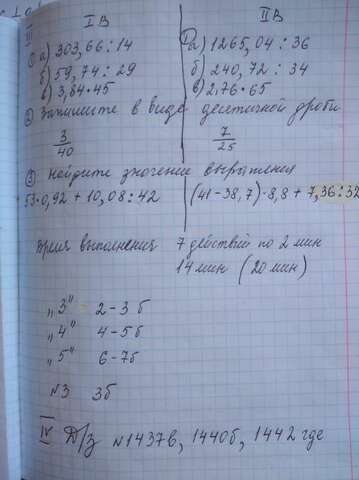 III I В II В
① а) 303,66 : 14 ① а) 1265,04 : 36
б) 59,74 : 29 б) 240,72 : 34
в) 3,84 · 45 в) 2,76 · 65
② Запишите в виде десятичной дроби
3/40 7/25
③ Найдите значение выражения
53 · 0,92 + 10,08 : 42 (41 - 38,7) · 8,8 + 7,36 : 32
Время выполнения 7 действий по 2 мин
14 мин (20 мин)
„3" - 2-3 б
„4" 4-5б
„5" 6-7б
№3 3б
IV Д/з №1437в, 1440б, 1442 где